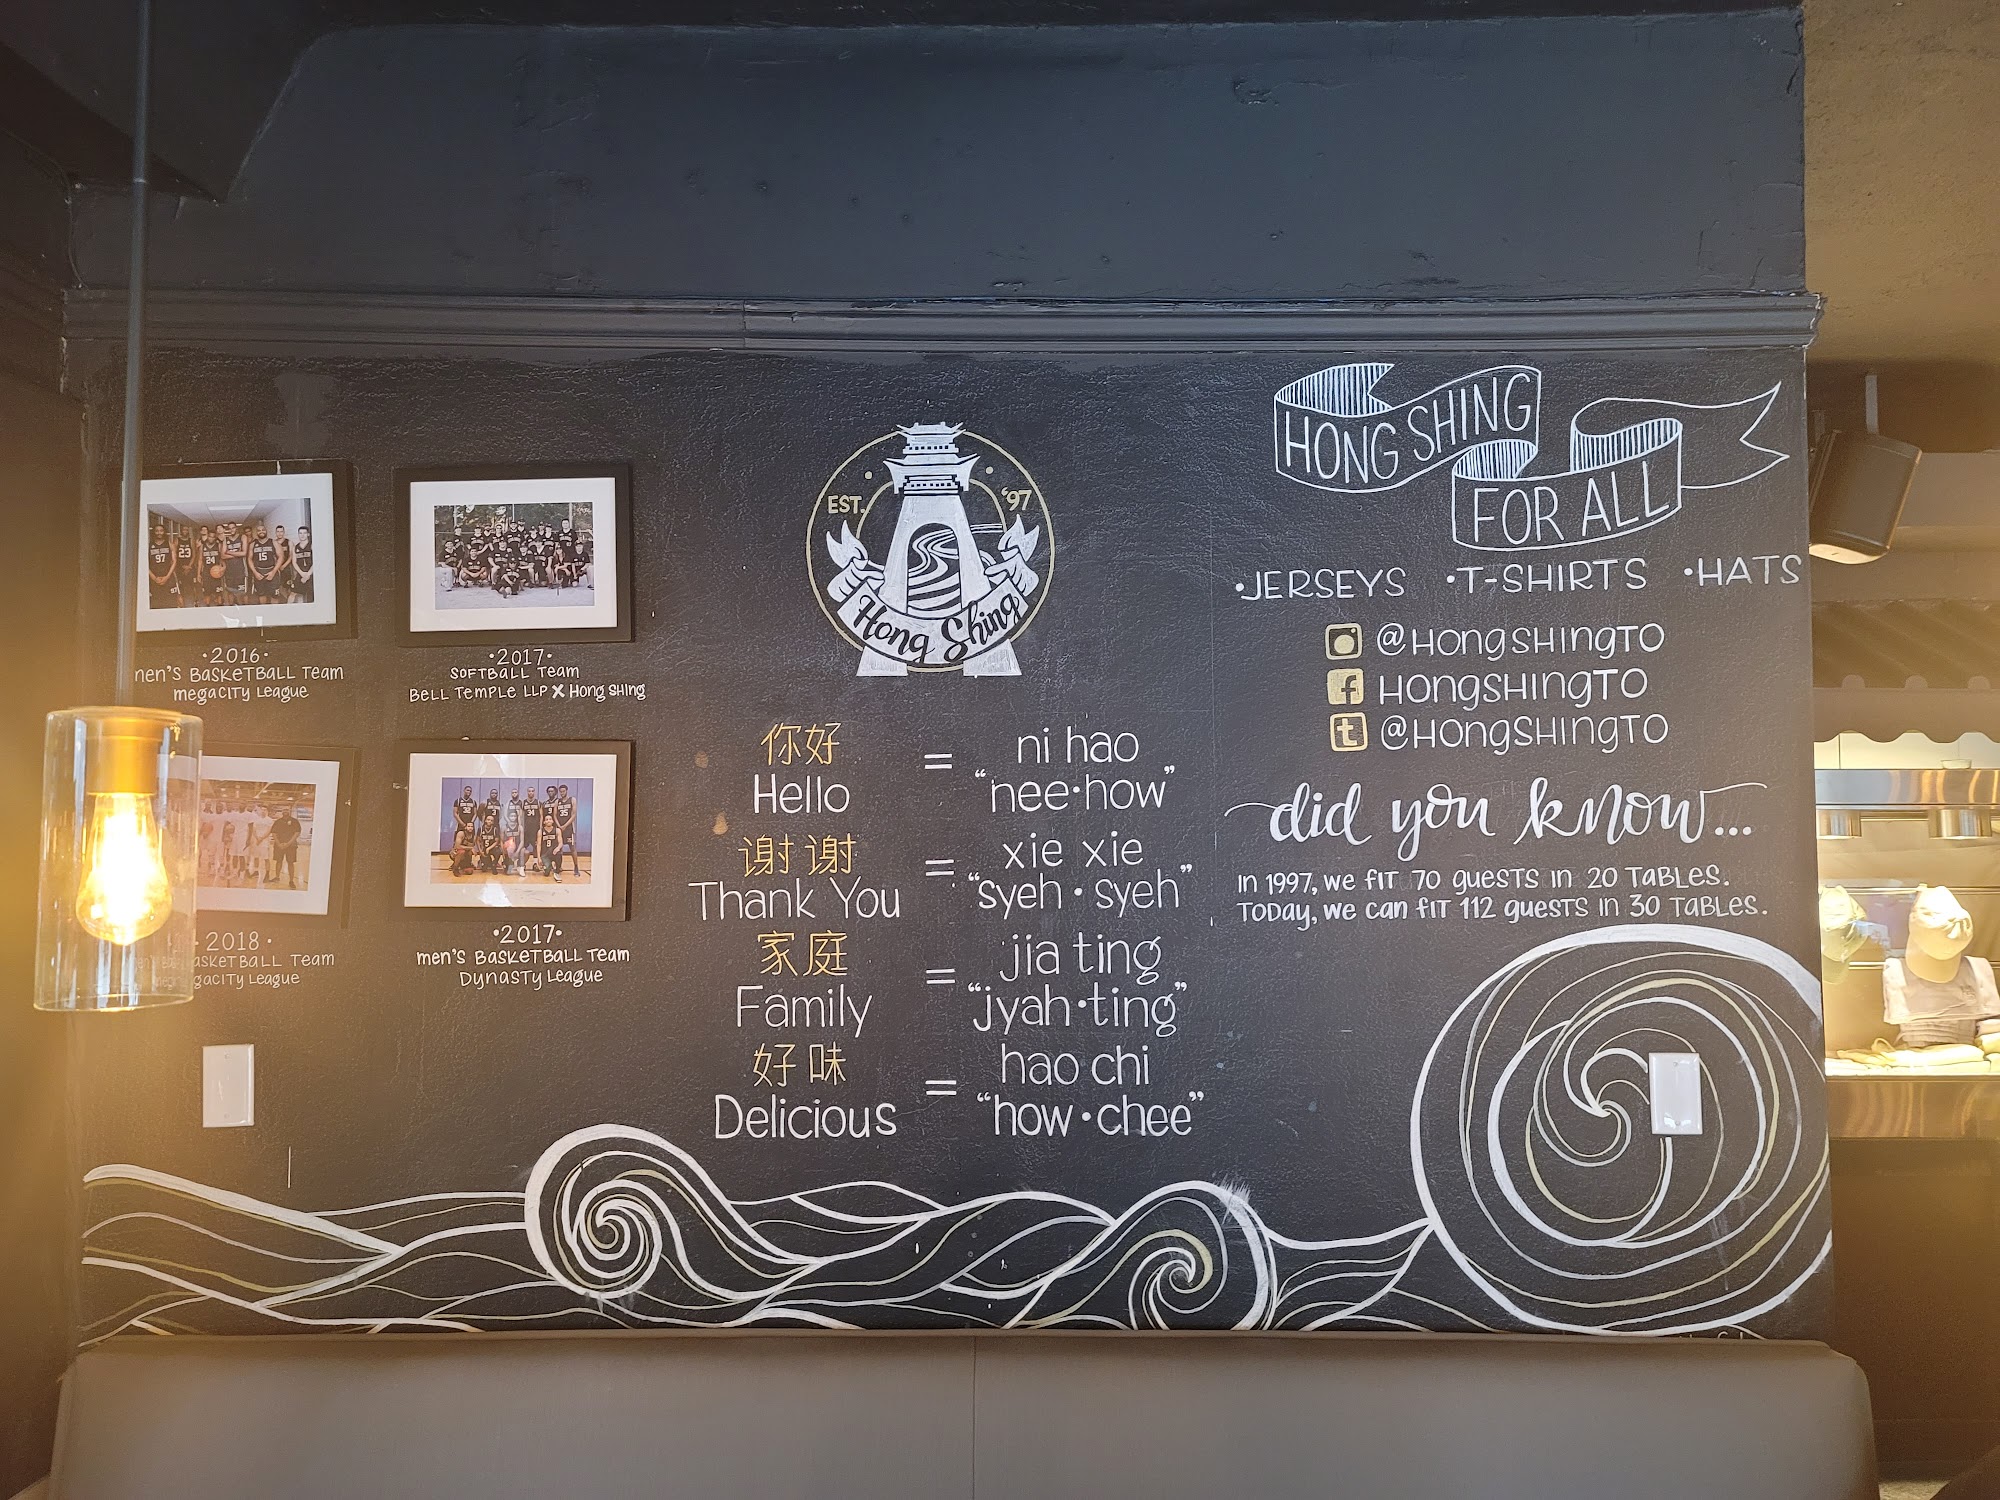 •2016•
men's Basketball Team
megacity League
•2017•
Softball Team
Bell Temple LLP X Hong Shing
2018•
Basketball Team
League
•2017•
men's Basketball Team
Dynasty League
EST. '97
Hong Shing
你好 = ni hao
Hello "nee•how"
谢谢 = xie xie
Thank You "syeh•syeh"
家庭 = jia ting
Family "jyah•ting"
好味 = hao chi
Delicious "how•chee"
HONG SHING
FOR ALL
•JERSEYS •T-SHIRTS •HATS
@HongSHingTO
f HongSHingTO
t @HongSHingTO
did you know...
In 1997, we fit 70 guests in 20 tables.
Today, we can fit 112 guests in 30 tables.